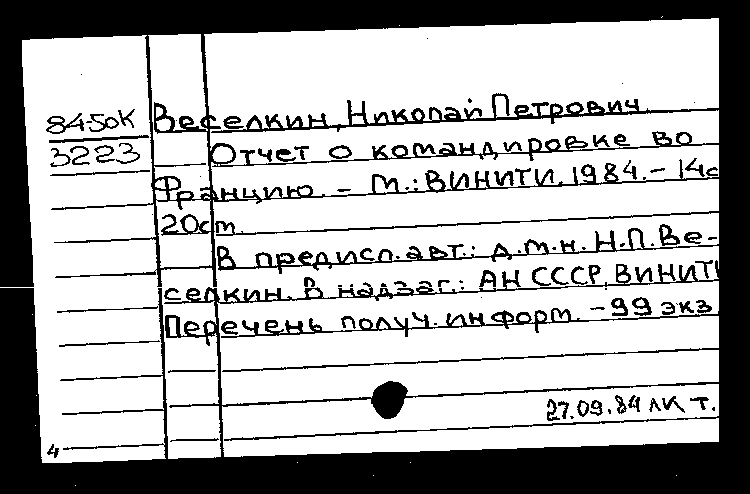 84-50К Веселкин, Николай Петрович
3223 Отчет о командировке во
Францию. – М.: ВИНИТИ, 1984. – 14с
20см.
В предисл. авт.: д.м.н. Н.П. Ве-
селкин. В надзаг.: АН СССР, ВИНИТИ
Перечень получ. информ. – 99 экз.
27.09.84 ЛК Т.
4